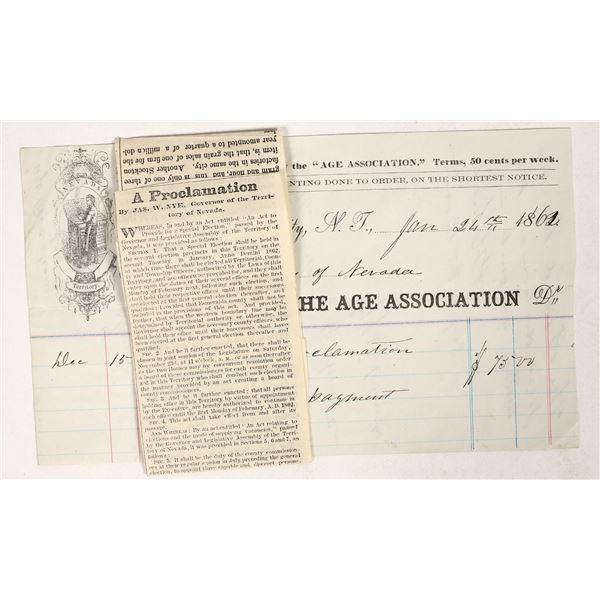 the "AGE ASSOCIATION." Terms, 50 cents per week.
NTING DONE TO ORDER, ON THE SHORTEST NOTICE.
ity, N. T., Jan 24th 1862
of Nevada
HE AGE ASSOCIATION Dr
Dec 15
clamation $75 00
payment
NEVADA
Territory
year amounted to a quarter of a million dol-
the grain sales of one firm for the
item is, that the
factories in the same city. Another Stockton
A Proclamation
By JAS. W. NYE, Governor of the Terri-
tory of Nevada.
WHEREAS, In and by an Act entitled "An Act to
Provide for a Special Election," passed by the
Governor and Legislative Assembly of the Territory of
Nevada, it was provided as follows:
SECTION 1. That a Special Election shall be held in
the several election precincts in this Territory on the
second Tuesday in January, Anno Domini 1862,
at which time there shall be elected all Territorial, Coun-
ty and Township Officers, authorized by the Laws of this
Territory, and not otherwise provided for, and they shall
enter upon the duties of their several offices on the first
Monday of February next, following such election, and
shall hold their respective offices until their successors,
elected at the first general election thereafter, shall have
qualified; Provided that
included in the provisions of this act. And provided,
further, that when the western boundary line may be
determined by Territorial authority or otherwise, the
Governor shall appoint the necessary county officers, who
shall hold their office until their successors shall have
been elected at the first general election thereafter and
qualified.
SEC. 2. And be it further enacted, that there shall be
chosen in joint session of the Legislature on Saturday,
November 23d, at 11 o'clock, A. M., or as soon thereafter
as the two Houses may by concurrent resolution order
a board of three commissioners for each county organi-
zed in this Territory who shall conduct such election in
the manner provided by an act creating a board of
county commissioners.
SEC. 3. And be it further enacted; that all persons
holding office in this Territory by virtue of appointment
by the Executive, are hereby authorized to continue in
such office until the first Monday of February, A. D. 1862.
SEC. 4. This act shall take effect from and after its
passage.
AND WHEREAS: By an act entitled "An Act relating to
elections and the mode of supplying vacancies," passed
by the Governor and Legislative Assembly of the Territo-
ry of Nevada, it was provided in Sections 5, 6 and 7, as
follows:
SEC. 5. It shall be the duty of the county commission-
ers at their regular session in July preceding the general
election, to appoint three capable and discreet persons